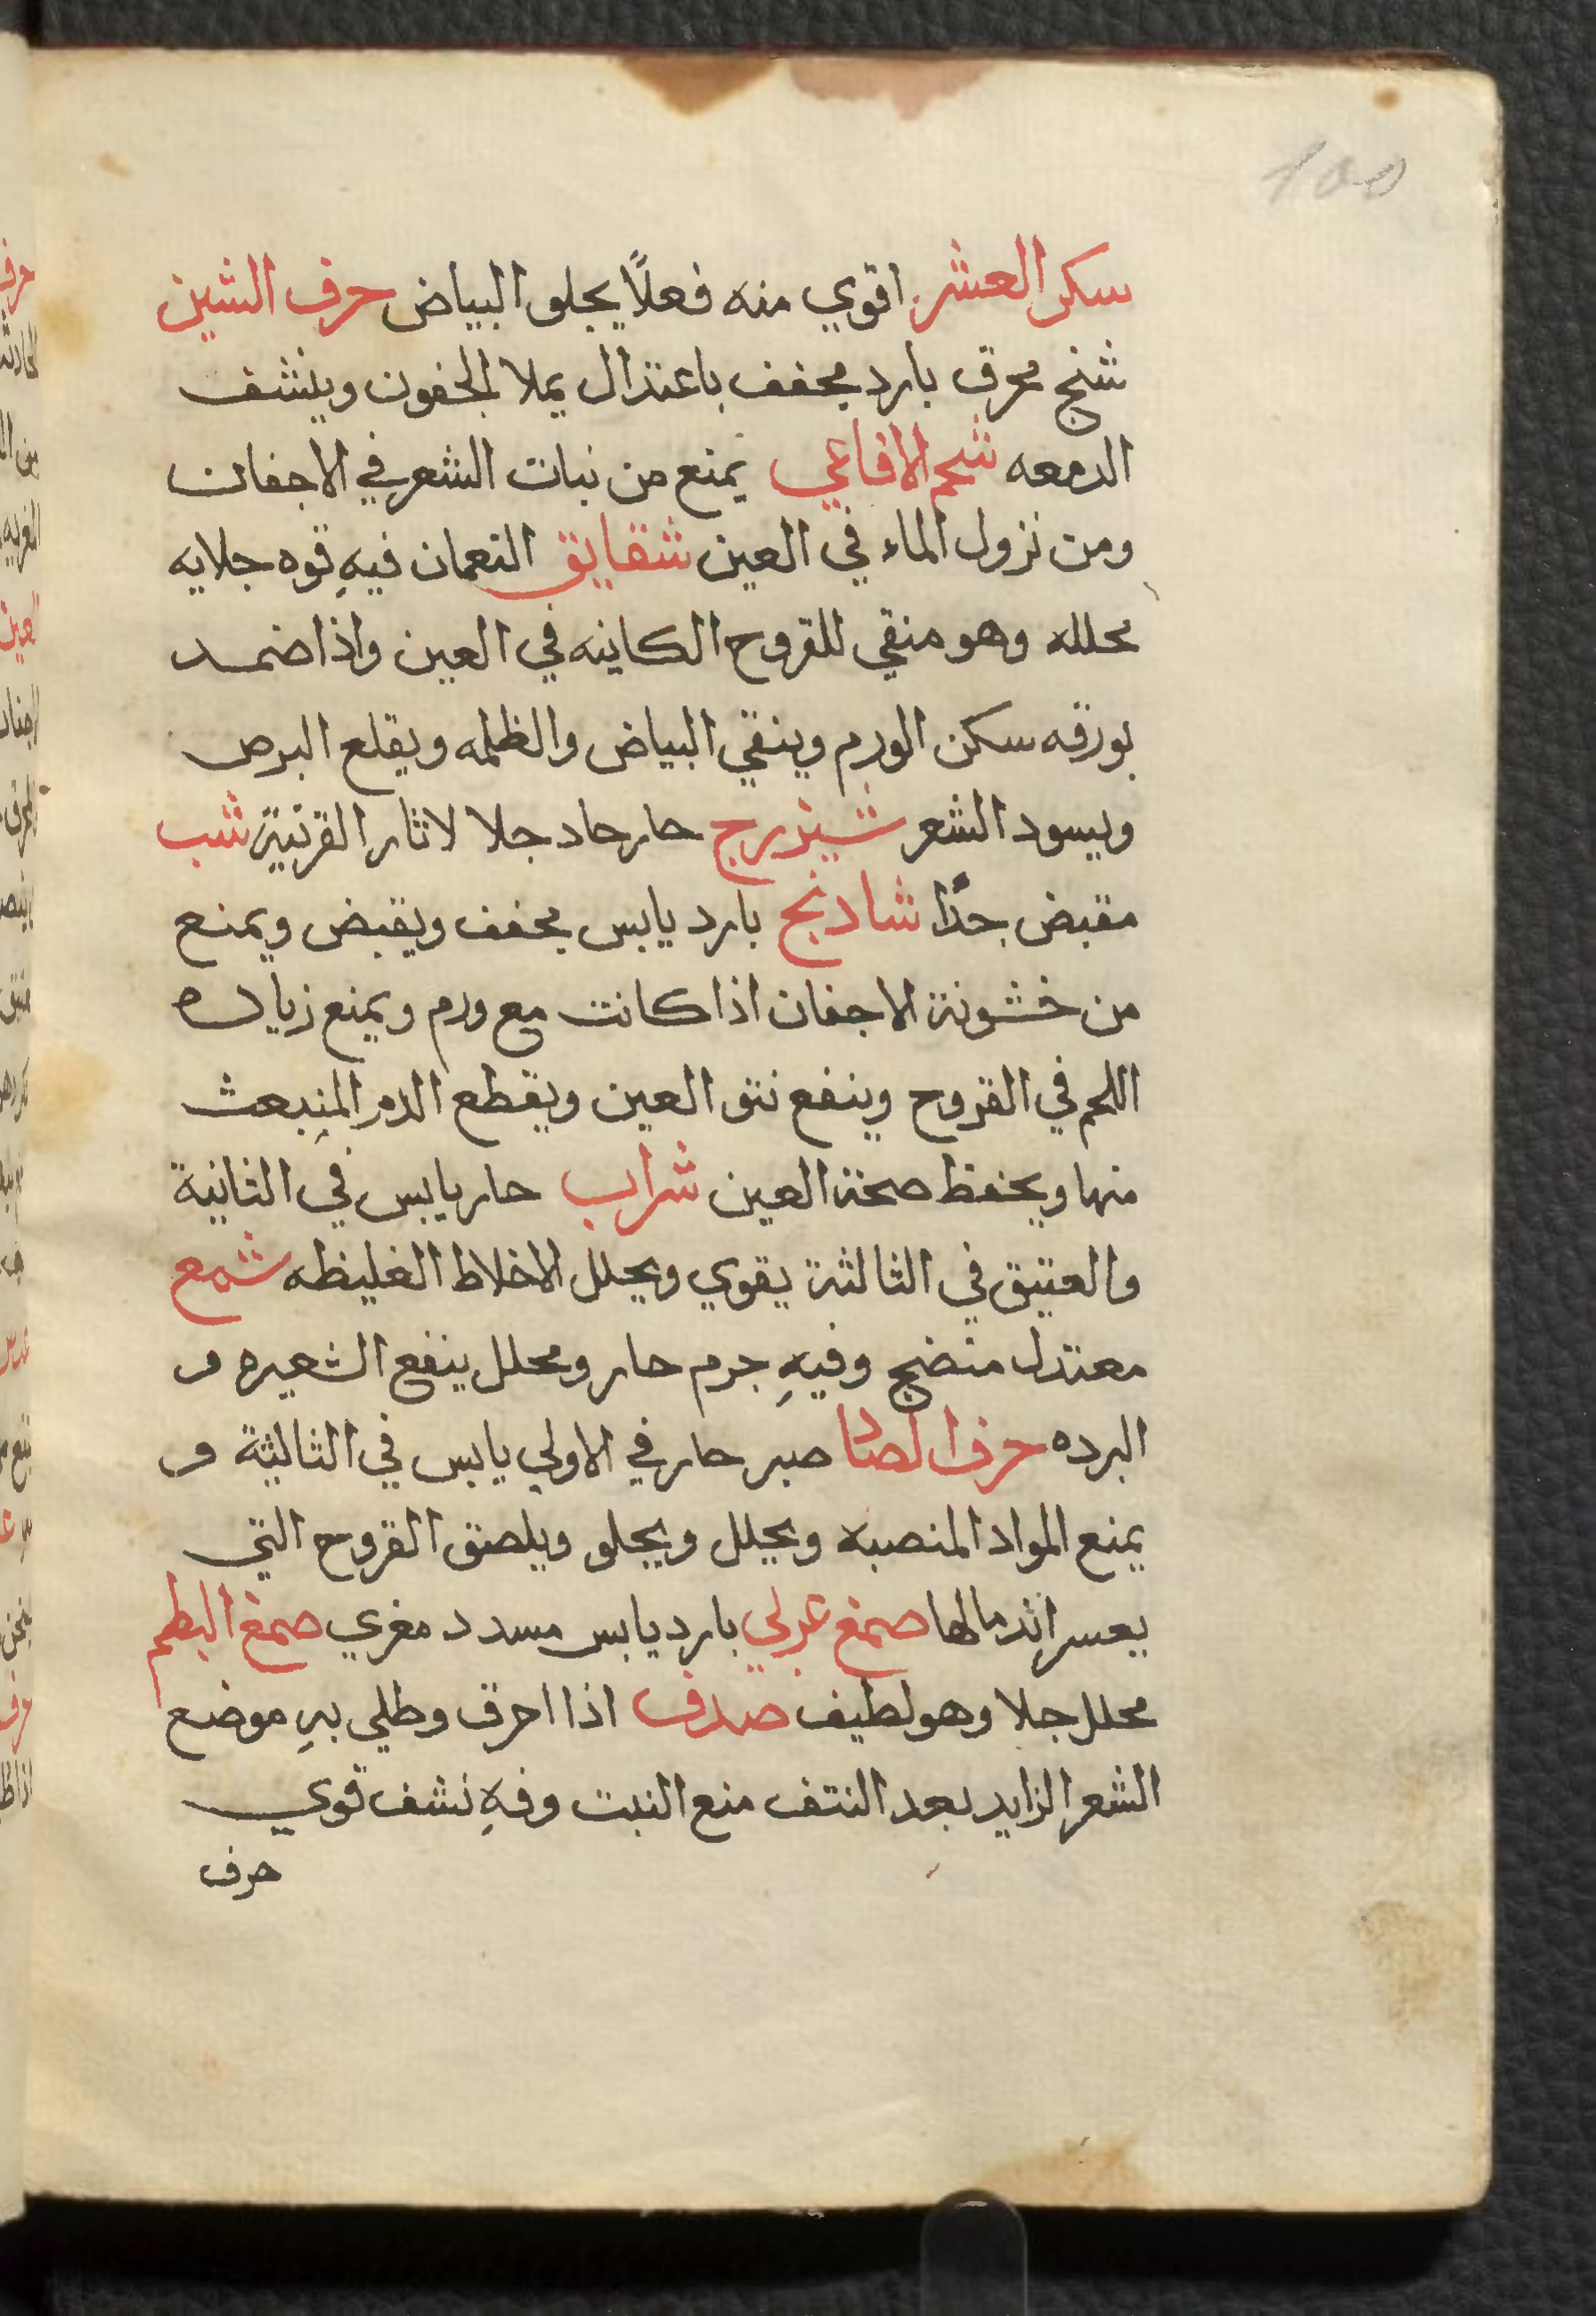 100
سكر العشر اقوي منه فعلاً يجلو البياض حرف الشين
شنج محرق بارد مجفف باعتدال يملا الجفون وينشف
الدمعه شحم الافاعي يمنع من نبات الشعر في الاجفان
ومن نزول الماء في العين شقايق النعمان فيهِ قوه جلايه
محلله وهو منقي للقروح الكاينه في العين واذا ضمد
بورقه سكن الورم وينقي البياض والظلمه ويقلع البرص
ويسود الشعر شيزرج حار حاد جلا لاثار القرنية شب
مقبض جدًا شادنج بارد يابس مجفف ويقبض ويمنع
من خشونة الاجفان اذا كانت مع ورم ويمنع زياده
اللحم في القروح وينفع نتو العين ويقطع الدم المنبعث
منها ويحفظ صحة العين شراب حار يابس في الثانية
والعتيق في الثالثة يقوي ويحلل الاخلاط الغليظه شمع
معتدل منضج وفيهِ جرم حار ومحلل ينفع الشعيره و
البرده حرف الصاد صبر حار في الاولي يابس في الثالثة و
يمنع المواد المنصبه ويحلل ويجلو ويلصق القروح التي
يعسر اندمالها صمغ عربي بارد يابس مسدد مغري صمغ البطم
محلل جلا وهو لطيف صدف اذا احرق وطلي بهِ موضع
الشعر الزايد بعد النتف منع النبت وفهِ نشف قوي
حرف